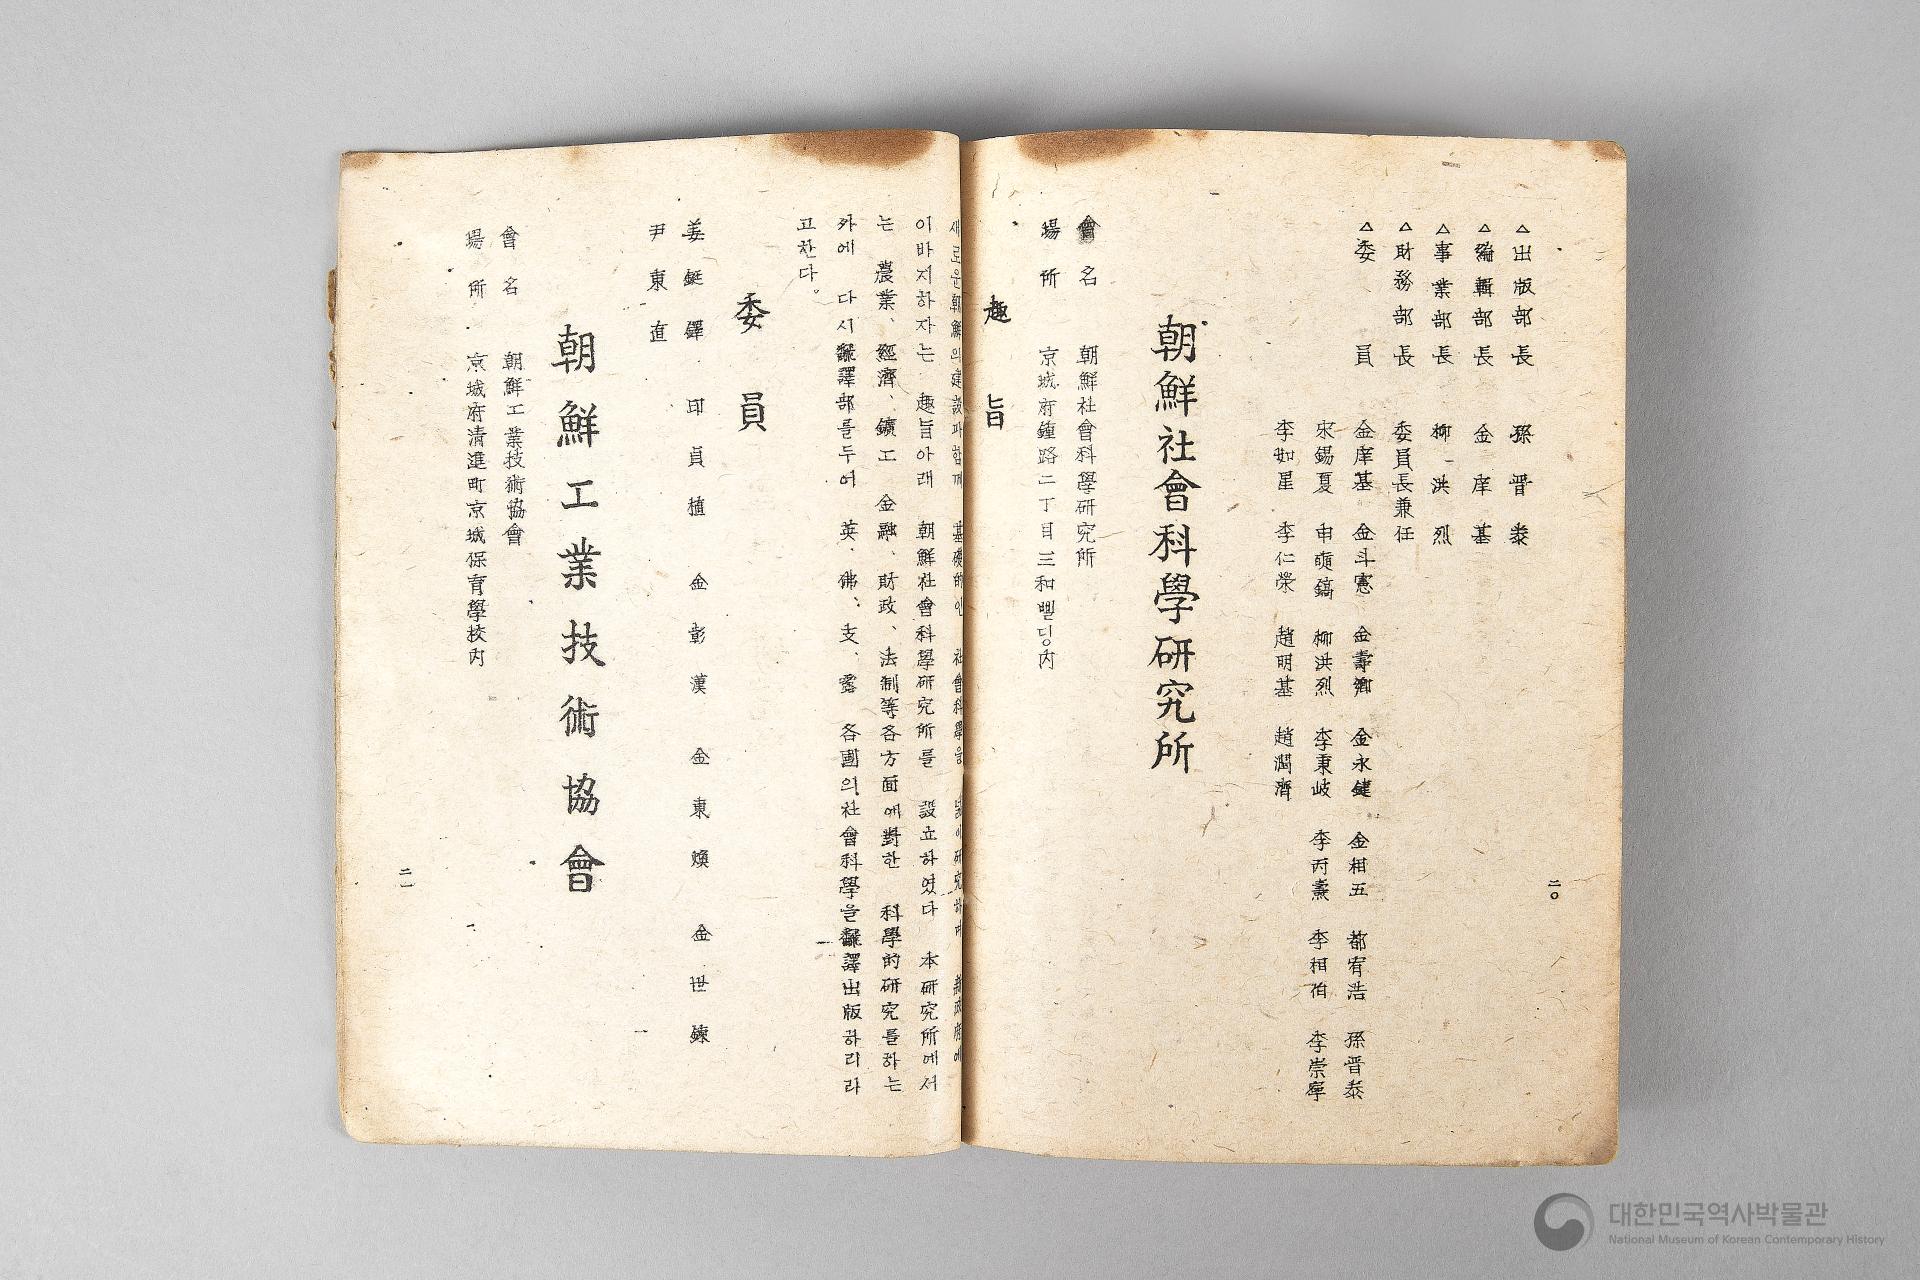 △出版部長 孫晋泰
△編輯部長 金庠基
△事業部長 柳洪烈
△財務部長 委員長兼任
△委員 金庠基 金斗憲 金壽卿 金永鍵 金相五 都宥浩 孫晋泰
宋錫夏 申奭鎬 柳洪烈 李秉岐 李丙燾 李相佰 李崇寧
李如星 李仁榮 趙明基 趙潤濟
二〇
朝鮮社會科學研究所
會名 朝鮮社會科學研究所
場所 京城府鍾路二丁目三和삘딍内
趣旨
새로운朝鮮의建設과함께 基礎的인 社會科學을 넓이研究하며 新政府에
이바지하자는 趣旨아래 朝鮮社會科學研究所를 設立하였다 本研究所에서
는 農業、經濟、鑛工 金融、財政、法制等各方面에對한 科學的研究를하는
外에 다시飜譯部를두어 英、佛、支、露 各國의社會科學을飜譯出版하리라
고한다。
委員
姜鋌鐸 印貞植 金彰漢 金東煥 金世鍊
尹東直
朝鮮工業技術協會
會名 朝鮮工業技術協會
場所 京城府清進町京城保育學校内
二一
대한민국역사박물관
National Museum of Korean Contemporary History